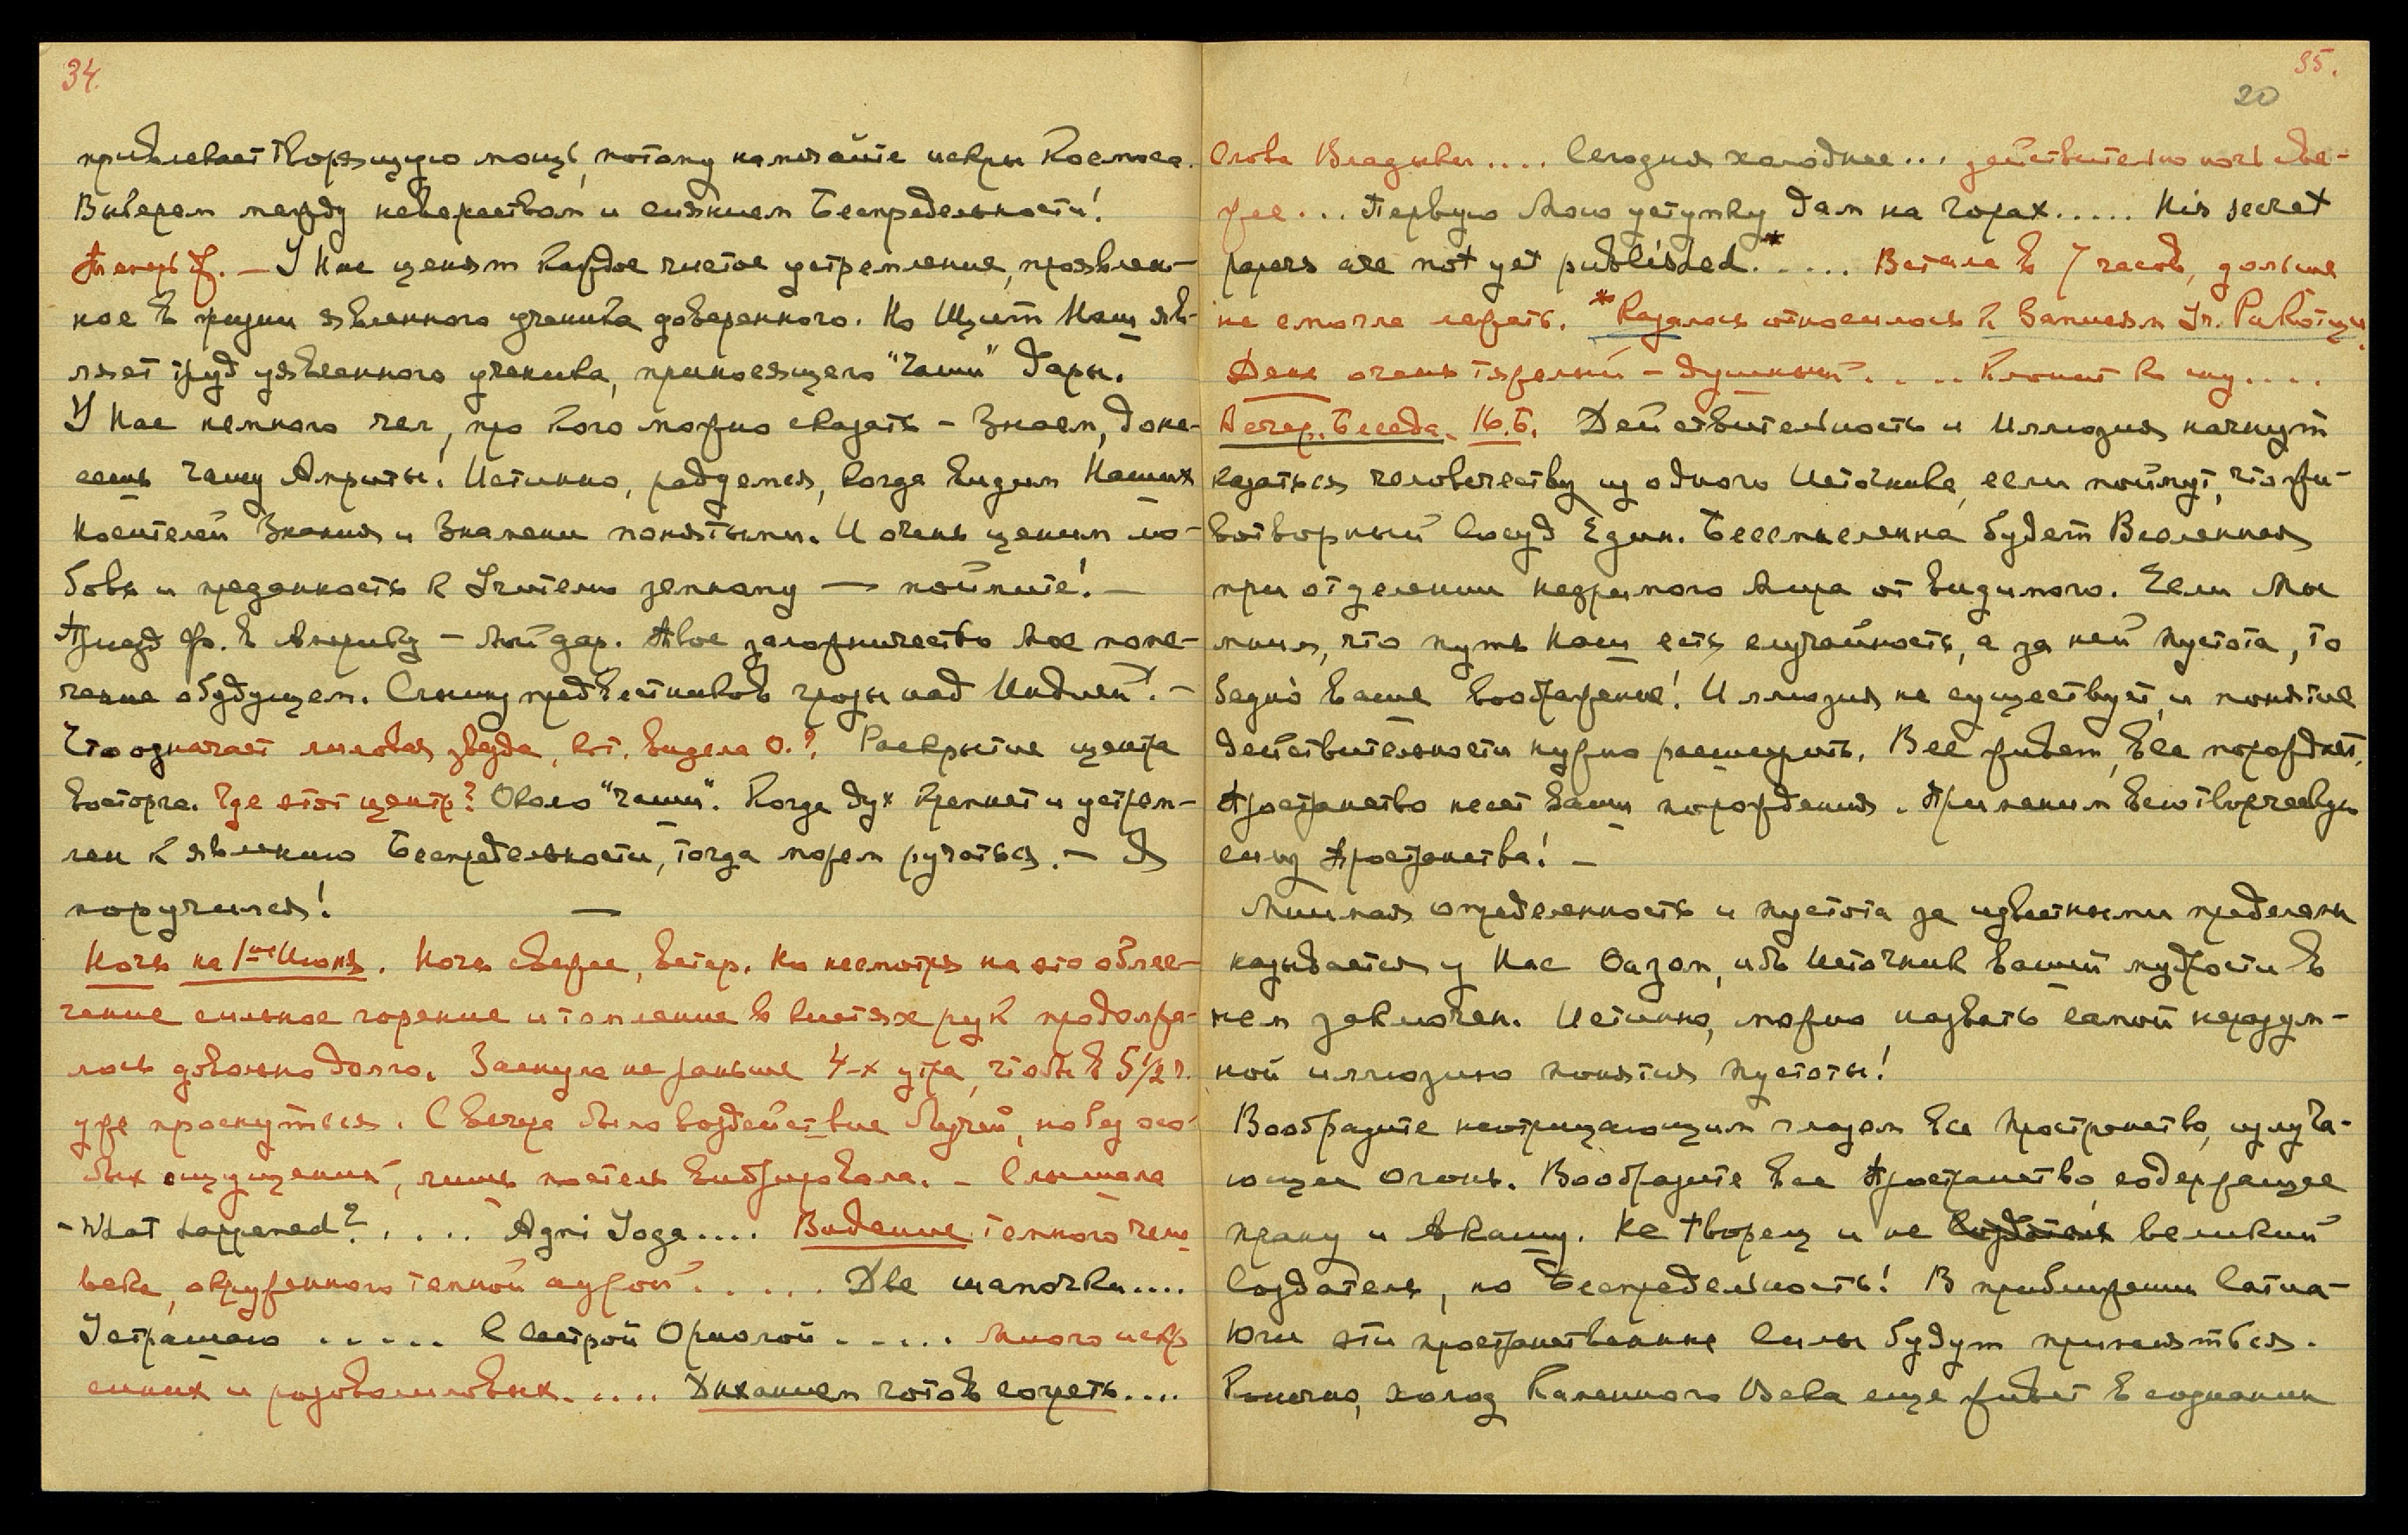 34.
привлекает творящую мощь, потому наметайте искры Космоса.
Выберем между неверством и сиянием Беспредельности!
Теперь Ф. — У Нас ценят каждое чистое устремление, проявлен-
ное в жизни явленного ученика доверенного. Но Щит Наш яв-
ляет труд уявленного ученика, приносящего "Чаши" дары.
У Нас немного чел, про кого можно сказать – Знаем, доне-
сешь чашу Амриты! Истинно, радуемся, когда видим Наших
Носителей Знания и Знамени понятыми. И очень ценим лю-
бовь и преданность к Учителю земному — поймите! —
Приезд Фр. в Америку – Мой дар. Твое заложничество Мое попе-
чение о будущем. Слышу предвестников грозы над Индией. –
Что означает лиловая звезда, кот. видела О.? Раскрытие центра
восторга. Где этот центр? Около "чаши". Когда дух крепнет и устрем-
лен к явлению Беспредельности, тогда можем ручаться. – Я
поручился! —
Ночь на 1ое Июня. Ночь свежее, ветер. Но несмотря на это облег-
чение сильное горение и томление в кистях рук продолжа-
лось довольно долго. Заснула не раньше 4-х утра, чтобы в 5½ ч.
уже проснуться. С вечера было воздействие Лучей, но без осо-
бых ощущений, лишь постель вибрировала. – Слышала
- What happened? ..... Agni Yoga.... Видение темного чело
века, окруженного темной аурой ..... Две шапочки....
Устрашаю ..... С Сестрой Ориолой ..... Много искр
синих и розоволиловых..... Дыханием готов согреть....
35.
20
Слова Владыки.... Сегодня холоднее... действительно ночь све-
жее... Первую Мою уступку дам на горах..... His secret
papers are not yet published.* .... Встала в 7 часов, дольше
не смогла лежать. *Казалось относилось к Запискам Гр. Ракоци.
День очень тяжелый – душный.... Клонит ко сну....
Вечер. Беседа. 16.Б. Действительность и Иллюзия начнут
казаться человечеству из одного Источника, если поймут, что жи-
вотворный Сосуд Един. Бессмысленна будет Вселенная
при отделении незримого Мира от видимого. Если Мы
мним, что путь Наш есть случайность, а за ней пустота, то
бедно ваше воображение! Иллюзия не существует, и понятие
действительности нужно расширить. Все живет, все порождает.
Пространство несет ваши порождения. Применим всю творческую
силу Пространства! –
Мнимая определенность и пустота за известными пределами
называется у Нас Оазом, ибо Источник вашей мудрости в
нем заключен. Истинно, можно назвать самой неразум-
ной иллюзию понятия пустоты!
Вообразите неотрицающим глазом все Пространство, излуча-
ющее огонь. Вообразите все Пространство, содержащее
прану и Акашу. Не творец и не создатель великий
Создатель, но Беспредельность! В приближении Сатиа-
Юги эти пространственные Силы будут применяться.
Конечно, холод Каменного Века еще живет в сознании